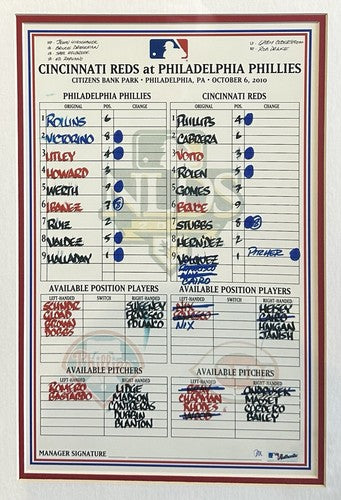 HP JOHN HIRSCHBECK
1B BRUCE DRECKMAN
ED RAPUANO
ROB DRAKE
CINCINNATI REDS at PHILADELPHIA PHILLIES
CITIZENS BANK PARK • PHILADELPHIA, PA • OCTOBER 6, 2010
PHILADELPHIA PHILLIES
ORIGINAL POS CHANGE
1 ROLLINS 6
2 VICTORINO 8
3 UTLEY 4
4 HOWARD 3
5 WERTH 9
6 IBANEZ 7
7 RUIZ 2
8 VALDEZ 5
9 HALLADAY 1
CINCINNATI REDS
ORIGINAL POS CHANGE
1 PHILLIPS 4
2 CABRERA 6
3 VOTTO 3
4 ROLEN 5
5 GOMES 7
6 BRUCE 9
7 STUBBS 8
8 HERNDEZ 2
9 VOLQUEZ 1 PITCHER
CAIRO
AVAILABLE POSITION PLAYERS
LEFT-HANDED SWITCH RIGHT-HANDED
SCHNDR SWEENEY
GLOAD
BROWN POLANCO
DOBBS
AVAILABLE POSITION PLAYERS
LEFT-HANDED SWITCH RIGHT-HANDED
NIX
HANIGAN
JANISH
AVAILABLE PITCHERS
LEFT-HANDED RIGHT-HANDED
ROMERO LIDGE
BASTARDO MADSON
CONTRERAS
DURBIN
BLANTON
AVAILABLE PITCHERS
LEFT-HANDED RIGHT-HANDED
CHAPMAN MASSET
RHODES CORDERO
BAILEY
MANAGER SIGNATURE